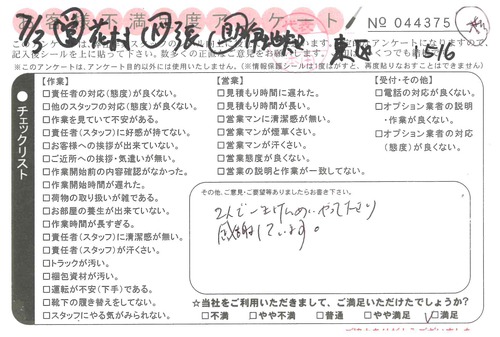 お客様不満足度アンケート No 044375
7/3 東区 1516
このアンケートは、アンケート目的以外には使用いたしません。(※情報保護シールは1度はがすと、再度貼りなおすことはできません)
チェックリスト
【作業】
□責任者の対応(態度)が良くない。
□他のスタッフの対応(態度)が良くない。
□作業を見ていて不安がある。
□責任者(スタッフ)に好感が持てない。
□お客様への挨拶が出来ていない。
□ご近所への挨拶・気遣いが無い。
□作業開始前の内容確認がなかった。
□作業開始時間が遅れた。
□荷物の取り扱いが雑である。
□お部屋の養生が出来ていない。
□作業時間が長すぎる。
□責任者(スタッフ)に清潔感が無い。
□責任者(スタッフ)が汗くさい。
□トラックが汚い。
□梱包資材が汚い。
□運転が不安(下手)である。
□靴下の履き替えをしてない。
□スタッフにやる気がみられない。
【営業】
□見積もり時間に遅れた。
□見積もり時間が長い。
□営業マンに清潔感が無い。
□営業マンが煙草くさい。
□営業マンが汗くさい。
□営業態度が良くない。
□営業の説明と作業が一致してない。
【受付・その他】
□電話の対応が良くない。
□オプション業者の説明
・作業が良くない。
□オプション業者の対応
(態度)が良くない。
その他、ご意見・ご要望等ありましたらお書き下さい。
2人で やって下さり
感謝しています。
☆当社をご利用いただきまして、ご満足いただけたでしょうか?
□不満 □やや不満 □普通 □やや満足 □満足